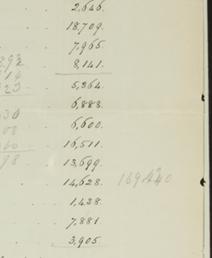 2,646.
18,709.
7,965.
8,141.
5,364.
6,888.
6,600.
16,511.
13,699.
14,628. 169,440
1,438.
7,881
3,905.